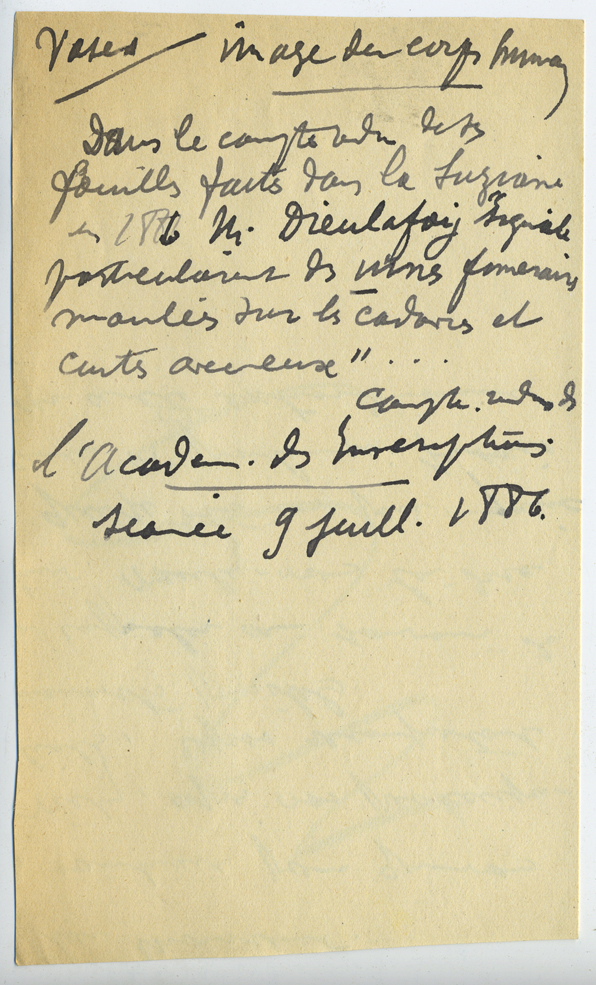 Vases / image du corps humain
Dans le compte rendu de ses
fouilles faites dans la Suziane
en 1886 M. Dieulafoy signale
particulièrement des urnes funéraires
moulées sur les cadavres et
cuites avec eux" . . .
Compte. rendus de
l'Académ. des Inscriptions.
séance 9 juill. 1886.